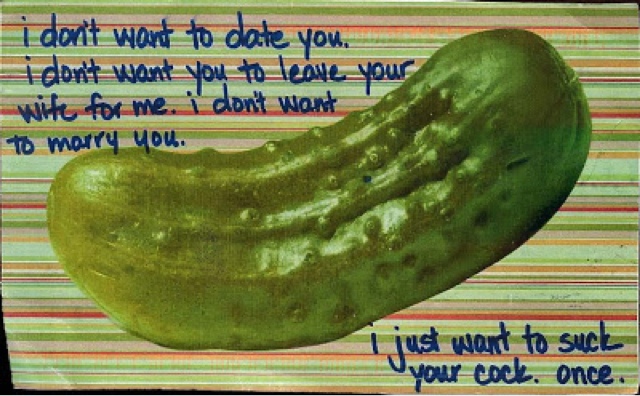 i don't want to date you.
i don't want you to leave your
wife for me. i don't want
to marry you.
i just want to suck
your cock. once.